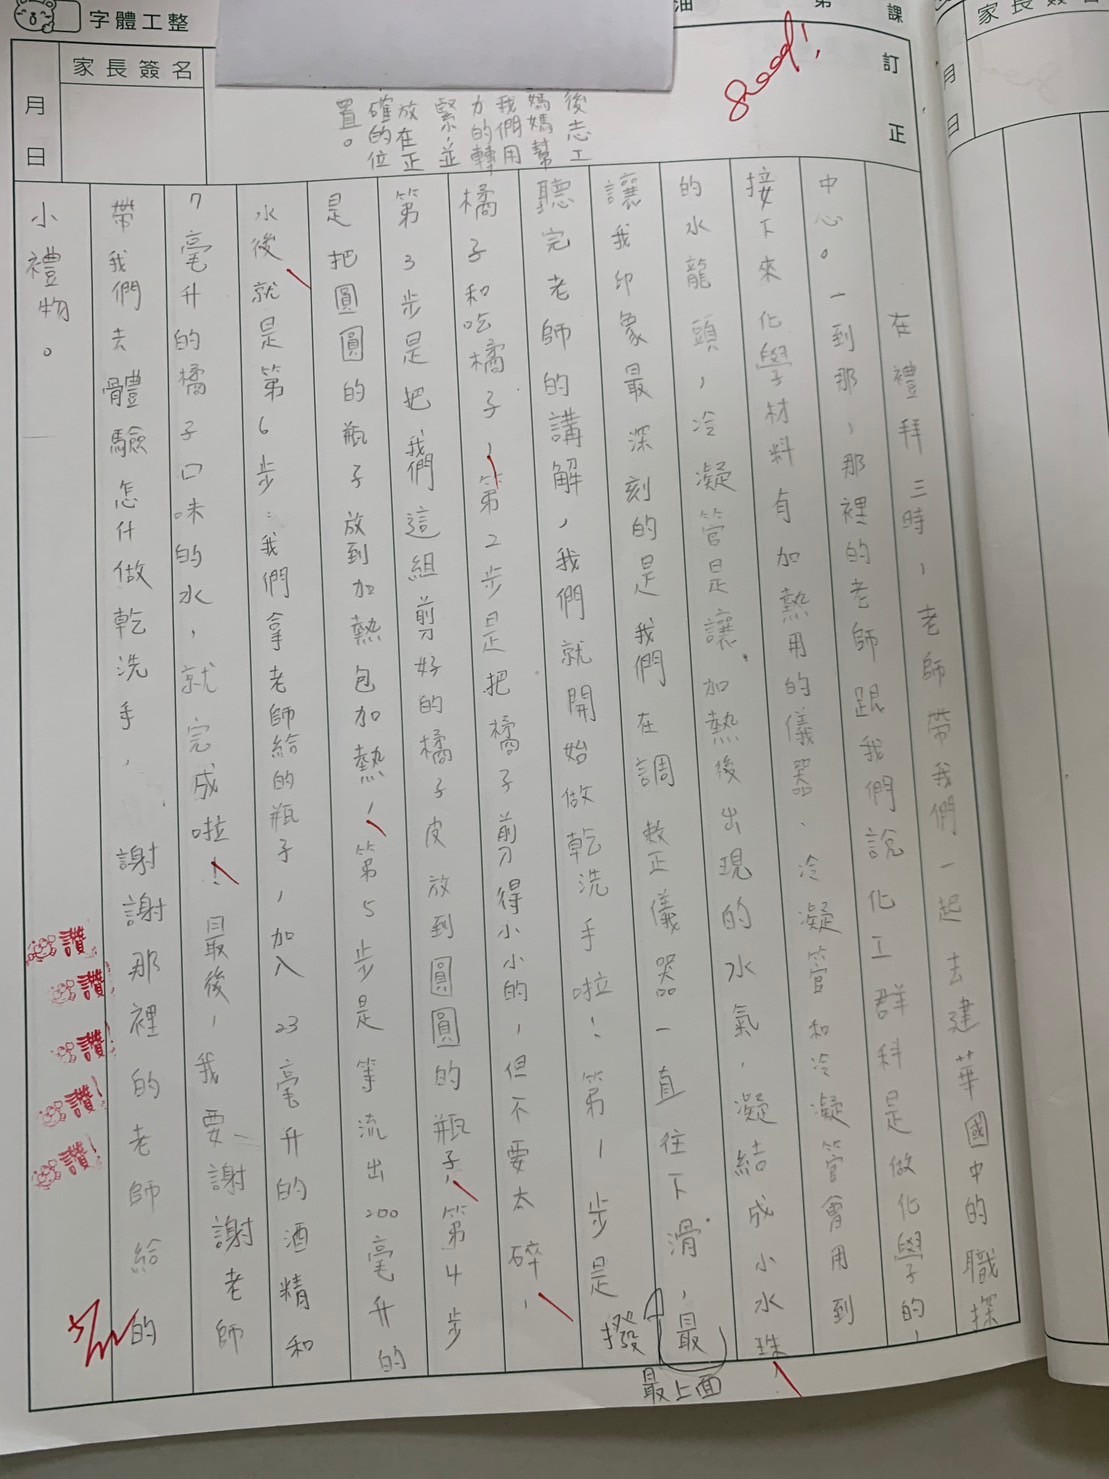 字體工整
家長簽名
月
日
第
課
訂正
Good!
家長簽名
月
日
在禮拜三時，老師帶我們一起去建華國中的職探
中心。一到那，那裡的老師跟我們說化工群科是做化學的，
接下來化學材料有加熱用的儀器、冷凝管和冷凝管會用到
的水龍頭，冷凝管是讓加熱後出現的水氣，凝結成小水珠，
讓我印象最深刻的是我們在調整儀器一直往下滑，最
最上面
後志工
媽媽幫
我們用
力的轉
緊，並
放在正
確的位
置。
聽完老師的講解，我們就開始做乾洗手啦！第1步是撥
橘子和吃橘子，第2步是把橘子剪得小小的，但不要太碎，
第3步是把我們這組剪好的橘子皮放到圓圓的瓶子，第4步
是把圓圓的瓶子放到加熱包加熱，第5步是等流出200毫升的
水後，就是第6步：我們拿老師給的瓶子，加入23毫升的酒精和
7毫升的橘子口味的水，就完成啦！最後，我要謝謝老師
帶我們去體驗怎什做乾洗手，謝謝那裡的老師給的
小禮物。
讚!
讚!
讚!
讚!
讚!